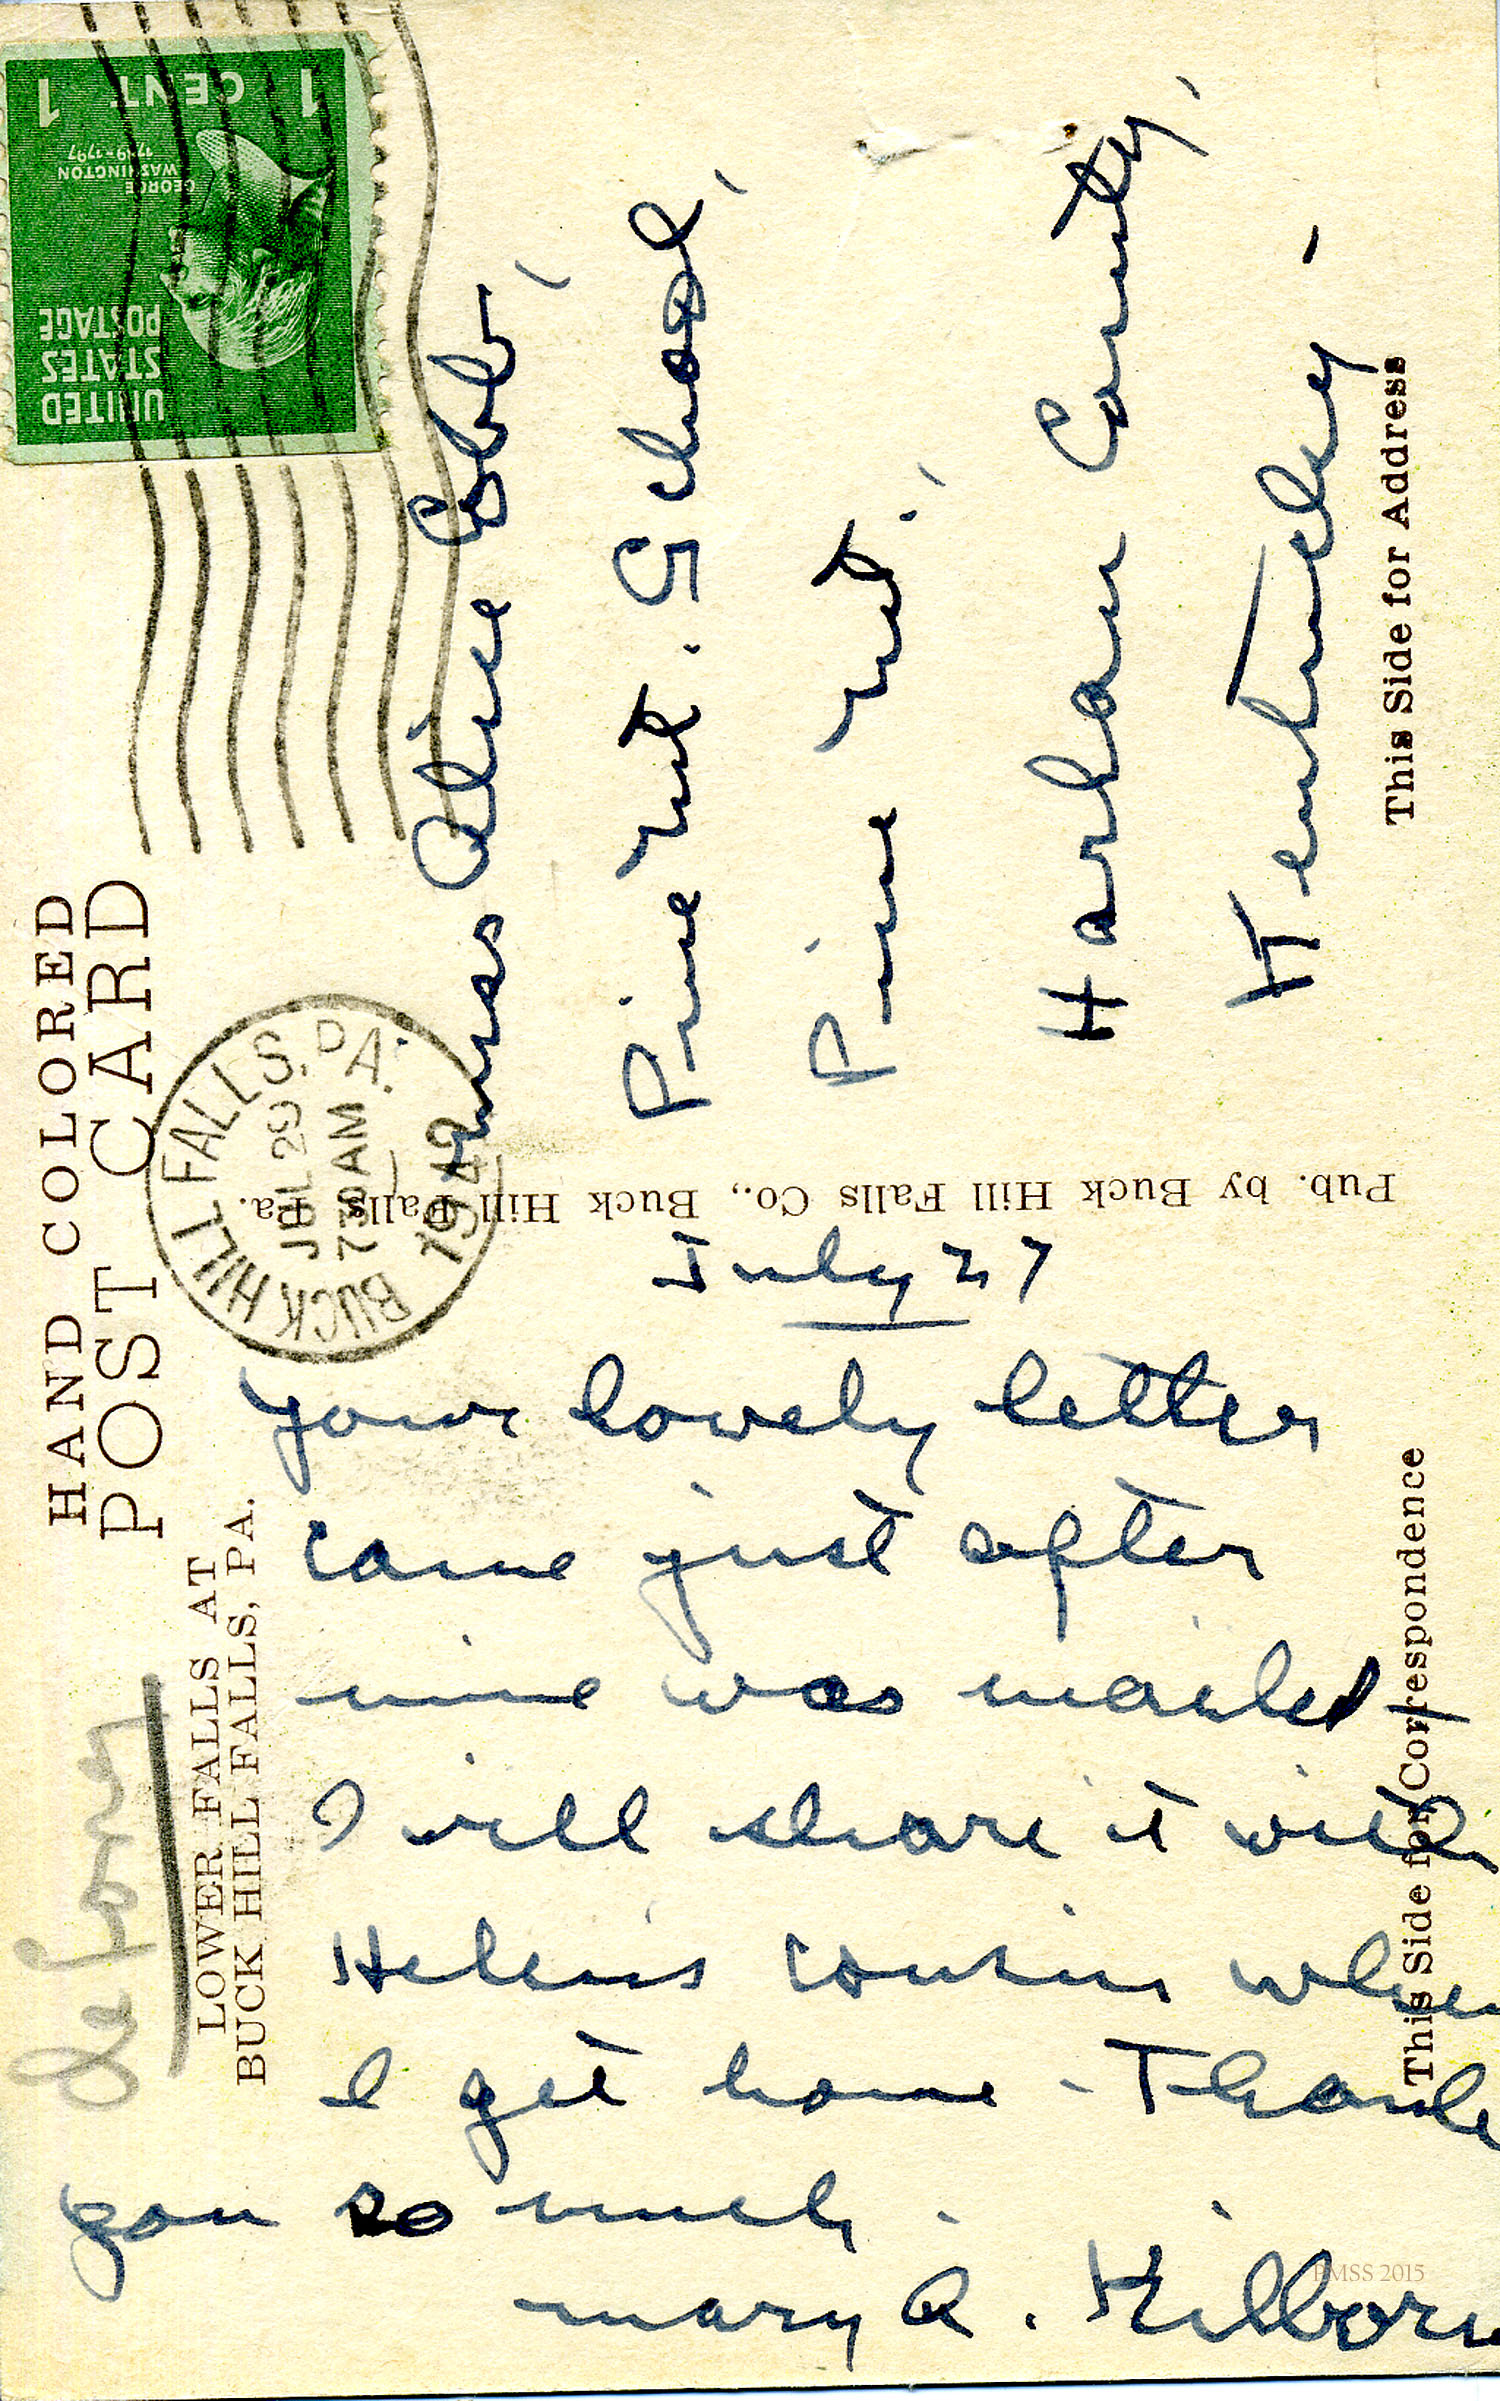 HAND COLORED
POST CARD
LOWER FALLS AT
BUCK HILL FALLS, PA.
De Long
UNITED
STATES
POSTAGE
GEORGE
WASHINGTON
1789-1797
1 CENT 1
BUCK HILL FALLS, PA.
JUL 29
7 30 AM
1942
Pub. by Buck Hill Falls Co., Buck Hill Falls Pa.
July 27
Your lovely letter
came just after
mine was mailed -
I will share it with
Helen's cousin when
I get home - Thank
you so much -
Mary A. Kilborn
This Side for Correspondence
Miss Alice Cobb,
Pine Mt. School,
Pine Mt.,
Harlan County,
Kentucky -
This Side for Address
PMSS 2015